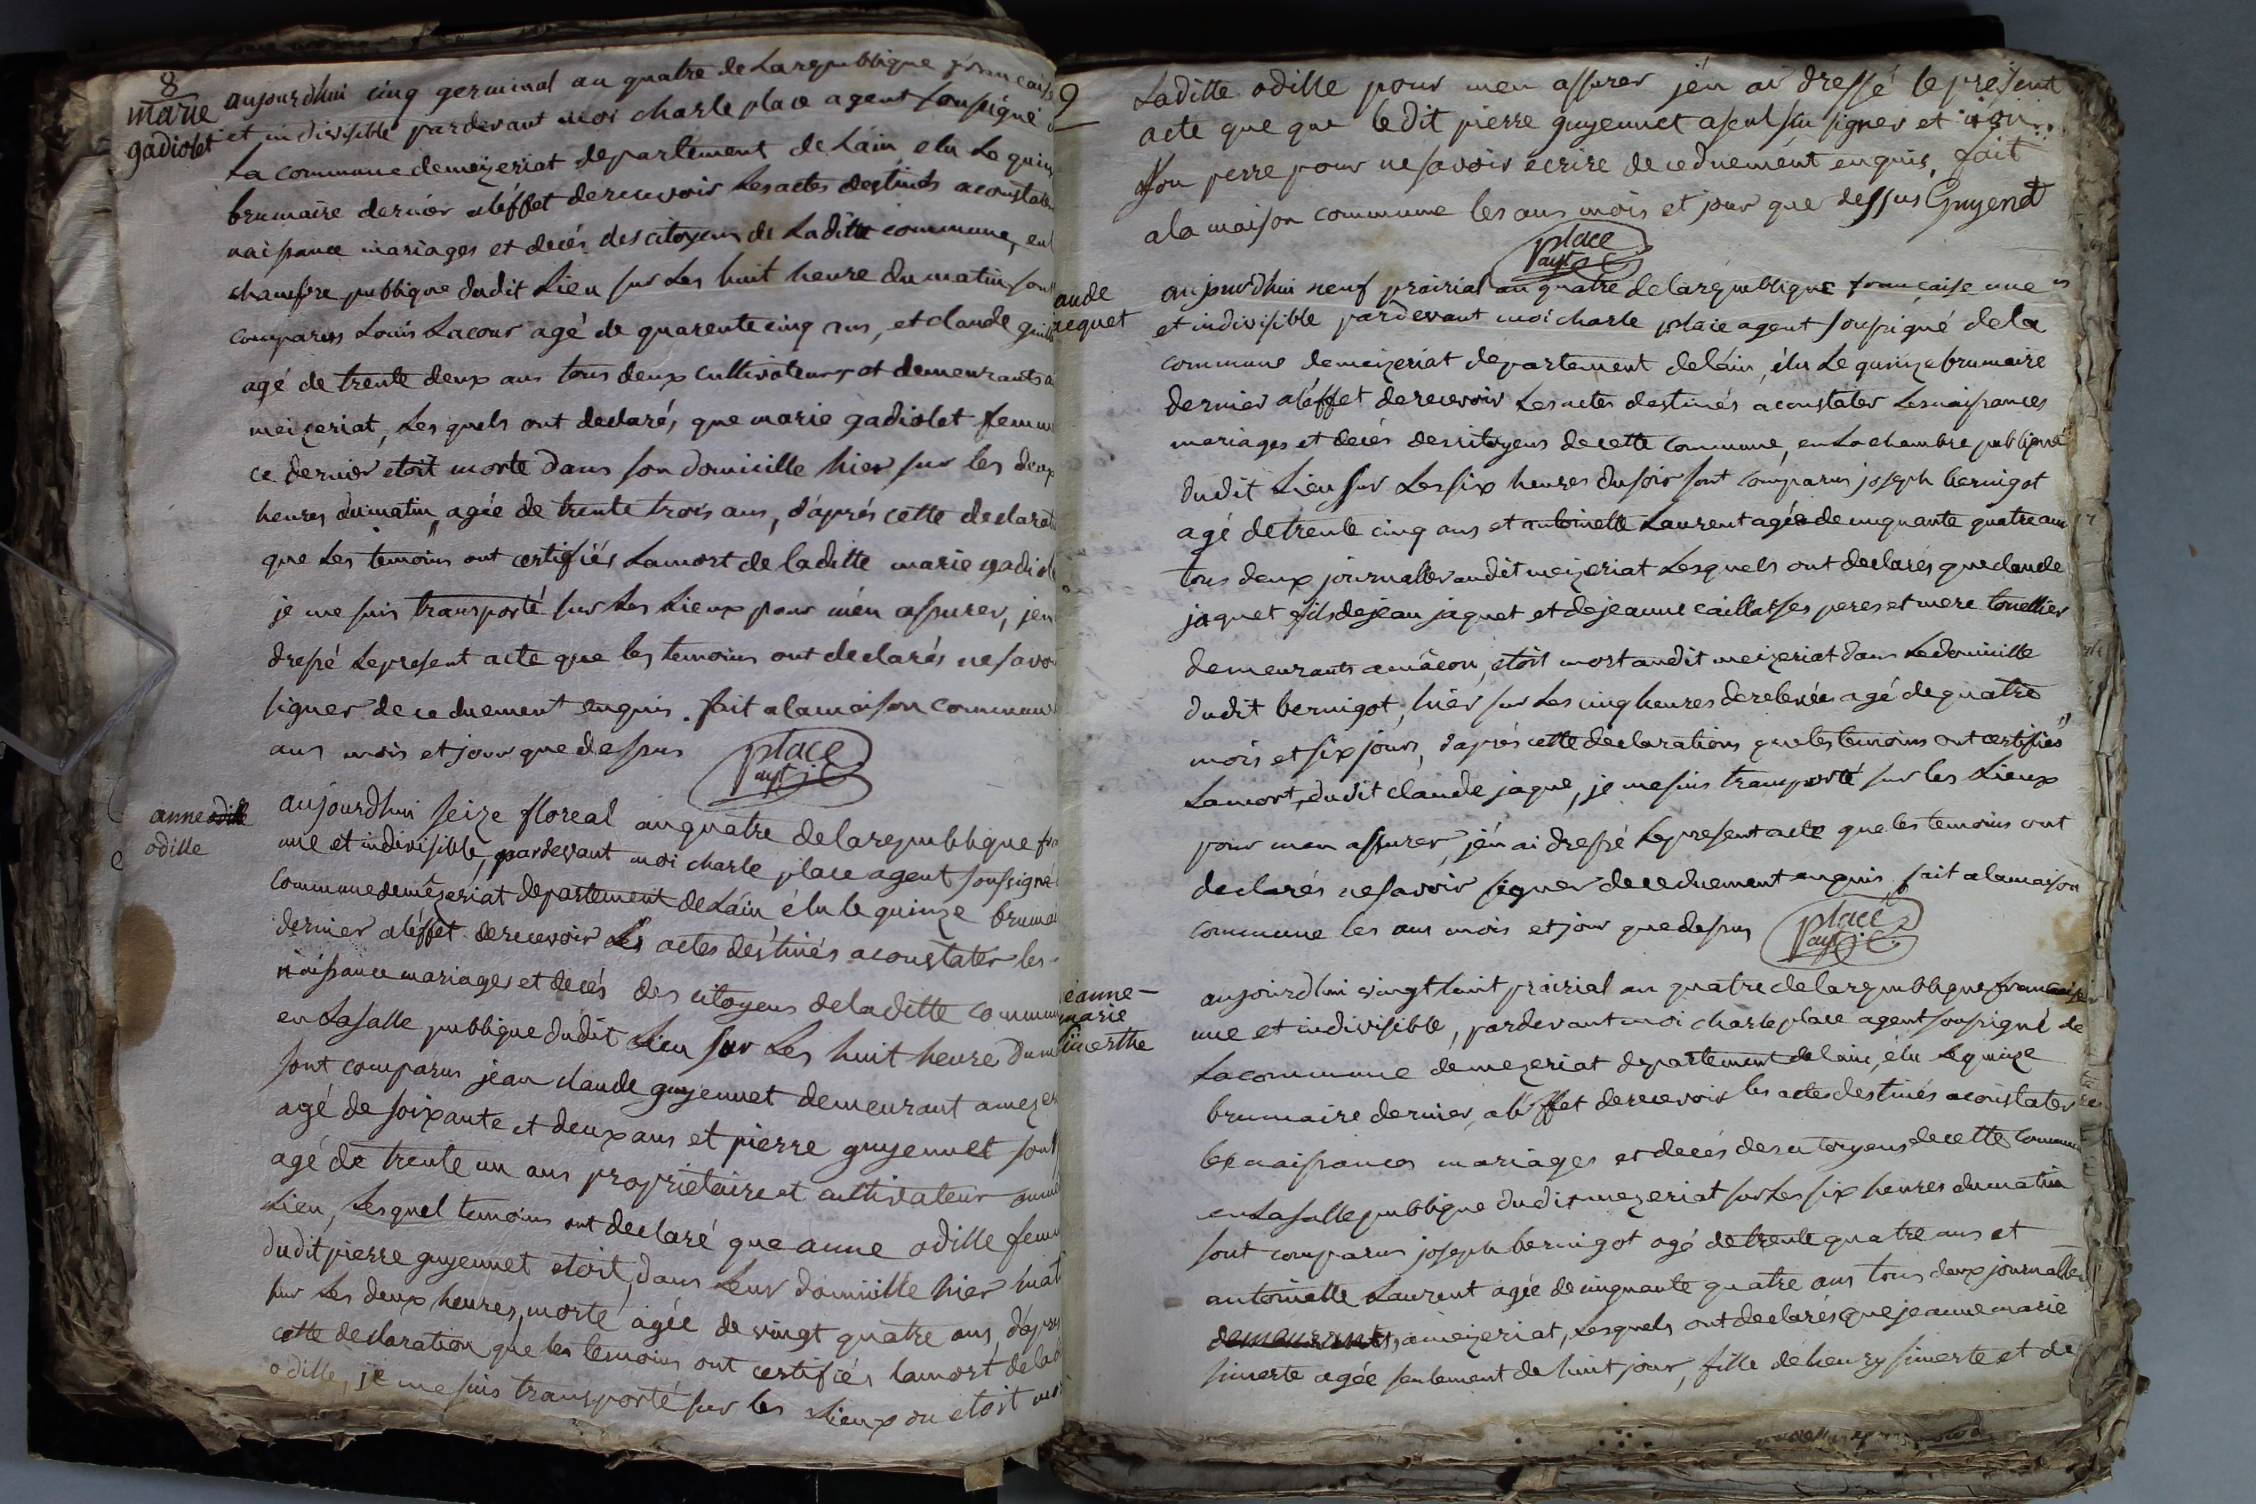 8
marie
gadiolet
aujourdhui cinq germinal an quatre de Larepubblique francaise
et indivisible pardevant moi charle place agent sousigné
La commune demeizeriat departement de Láin elu Le quin
brumaire dernier aléffet derecevoir Les actes destinés aconstate
naissance mariages et decés des citoyens de Laditte commune, en
chambre pubblique dudit Lieu sur Les huit heure dumatin son
comparus Louis Lacour agé de quarente cinq ans, et claude
agé de trente deux ans tous deux cultivateurs et demeurants a
meizeriat, Les quels ont declarés que marie gadiolet femm
ce dernier etoit morte dans son domicille hier sur les deux
heures dumatin, agée de trente trois ans, dáprés cette declarat
que Les temoins ont certifiés Lamort de laditte marie gadiol
je me suis transporté sur Les Lieux pour mén assurer, jen
dressé Lepresent acte que les temoins ont declarés nesavo
signer de ce duement enquis. fait alamaison commun
ans mois et jour que dessus place
agt
anne odille
odille
aujourdhui seize floreal anquatre delarepubblique fra
une et indivisible, pardevant moi charle place agent sousigné
commune demézeriat departement deLáin élu le quinze brumai
dernier aléffet derecevoir Les actes destinés aconstater les
naissance mariages et decés des citoyens deladitte commun
en Lasalle pubblique dudit Lieu sur Les huit heure dum
sont comparus jean claude guyennet demeurant amezer
agé de soixante et deux ans et pierre guyennet son
agé de trente un ans proprietaire et cultivateur
Lieu, Lesquel temoins ont declaré que anne odille fem
dudit pierre guyennet etoit, dans Leur domicille hier mat
sur Les deux heures, morte agée de vingt quatre ans, dápr
cette declaration que les temoins ont certifiés lamort dela
odille, je me suis transporté sur les Lieux ou etoit mo
9
Laditte odille pour men assurer jén ai dressé le présent
acte que que ledit pierre guyennet aseul su signer et non
son perre pour nesavoir écrire de ceduement enquis, fait
ala maison commune les ans mois et jour que dessus Guyenet
place
agt
aude
acquet
aujourdhui neuf prairial an quatre delarepubblique francaise une
et indivisible pardevant moi charle place agent sousigné dela
commune demeizeriat departement deláin, élu Le quinze brumaire
dernier aléffet derecevoir Les actes destinés aconstater Lesnaissances
mariages et decés descitoyens decette commune, en Lachambre pubblique
dudit Lieu sur Les six heures dusoir sont comparus joseph bernigot
agé detrente cinq ans et antoinette Laurent agée de cinquante quatre ans
tous deux journallier audit meizeriat Lesquels ont declarés que claude
jaquet fils dejean jaquet et dejeanne caillasses peres et mere tonellier
demeurants amâcon, etoit mort audit meizeriat dans Ledomicille
dudit bernigot, hier sur Les cinq heures derelevée agé de quatre
mois et six jours, dáprés cette declarations que les temoins ont certifiés
Lamort, dudit claude jaque, je mesuis transporté sur les Lieux
pour men assurer, jén ai dressé Lepresent acte que les temoins ont
declarés nesavoir signer deceduement enquis, fait alamaison
commune les ans mois et jour que dessus place
agt
eanne-
marie
simerthe
aujourdhui vingt huit prairial an quatre delarepubblique francaise
une et indivisible, pardevant moi charle place agent sousigné de
Lacommune demezeriat departement delain, élu Lequinze
brumaire dernier, aléffet derecevoir les actes destinés aconstater
les naissances mariages et decés des citoryens decette commun
en Lasalle pubblique dudit mezeriat sur Les six heures dumatin
sont comparus joseph bernigot agé de trente quatre ans et
antoinette Laurent agée decinquante quatre ans tous deux journallier
demeurants, ameizeriat, Lesquels ont declarés que jeanne marie
simerte agée seulement de huit jour, fille dehenry simerte et de